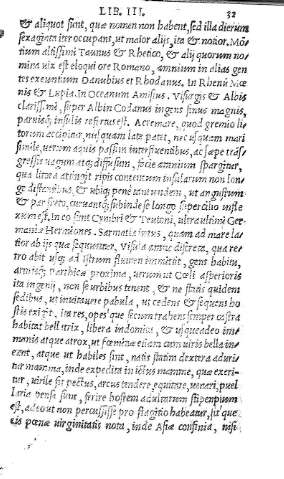 LIB. III. 32
& aliquot sunt, quæ nomen non habent, sed illa dierum
sexaginta iter occupant, ut maior aliis, ita & notior. Mõ
tium altissimi Taunus & Rhetico, & alij quorum no
mina vix est eloqui ore Romano, amnium in alias gen
tes exeuntium Danubius et Rhodanus. In Rhenũ Mæ
nis & Lupia. In Oceanum Amisius. Visurgis & Albis
clarissimi, super Albin Codanus ingens sinus magnis,
paruisq; insulis refertus est. Ac mare, quod gremio li
torum accipitur, nusquam late patet, nec usquam mari
simile, uerum aquis passim interfluentibus, ac sæpe trãs
gressis uagum atq; diffusum, facie amnium spargitur,
qua litora attingit ripis contentum insularum non lon
ge distantibus, & ubiq; pene tantundem, it angustum
& par freto, curuansq; subinde se longo supercilio infle
xum est, In eo sunt Cymbri & Teutoni, ultra ultimi Ger
maniæ Hermiones. Sarmatia intus, quam ad mare la
tior ab ijs qua sequuntur. Visula amne discreta, qua re
tro abit usq; ad Istrum flumen immittit, gens habitu,
armisq; Parthicæ proxima, uerum ut Cœli asperioris
ita ingenij, non se urbibus tenent, & ne statis quidem
sedibus, ut inuitauere pabula, ut cedens & sequens ho
stis exigit, ita res, opesq; secum trahens semper castra
habitat bellatrix, libera indomita, & usqueadeo im
manis atque atrox, ut fœminæ etiam cum uiris bella in
eant, atque ut habiles sint, natis statim dextera aduri
tur mamma, inde expedita in ictus manus, quæ exeri
tur, uirile fit pectus, arcus tendere, equitare, uenari, puel
laria pensa sunt, ferire hostem adultarum stipendium
est, adeo ut non percussisse pro flagitio habeatur, sit que
eis pœnæ uirginitatis nota, inde Asiæ confinia, nisi